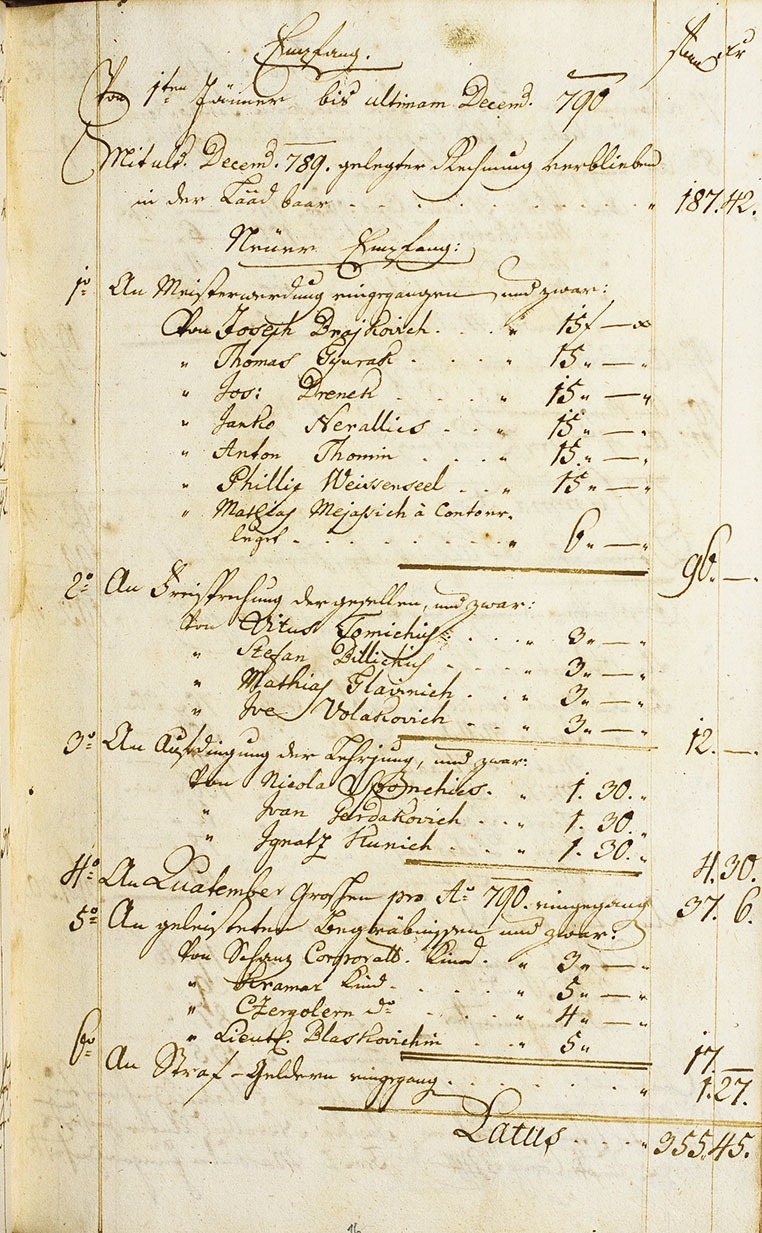 Empfang.
Von 1ten Jänner bis ultimam Decem̄. 790
Mit ult. Decem̄. 789. gelegter Rechnung verblieben
in der Laad baar - - - " 187. 42.
Neuer Empfang:
1o An Meisterwerdung eingegangen und zwar:
Von Joseph Brajkovich. . " 15f — x
" Thomas Gyurak . . . " 15 " — "
" Jos: Drenek . . . " 15 " — "
" Janko Nerallics . . " 15 " — "
" Anton Thomin . . . " 15 " — "
" Phillip Weissenseel . . " 15 " — "
" Mathias Mejassich à Contour-
. . . " 6 " — "
96. —.
2o An Freisprechung der gesellen, und zwar:
Von Vitus Tomichich . . . " 3 " — "
" Stefan Billichich . . . " 3 " — "
" Mathias Glavinich . . " 3 " — "
" Ive Volakovich . . . " 3 " — "
12. —.
3o An Aufdingung der Lehrjung, und zwar:
Von Nicola . " 1. 30. "
" Ivan Gerdakovich . . " 1. 30. "
" Ignatz Kunich . . . " 1. 30. "
4. 30.
4o An Quatember Groschen pro Ao 790. eingegang 37. 6.
5o An geleisteten Begräbnissen und zwar:
Von Schanz Corporall. Kind. " 3 " — "
" Kramar Kind. . . . " 5 " — "
" Czergolern do . . . " 4 " — "
" Lieut. Blaskovichin . . " 5 "
17. —
6to An Straf-Geldern eingegang . . . " 1. 27.
Latus . . . " 355. 45.